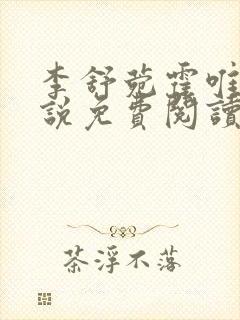 李舒菀霍唯
說免費閱讀
茶浮不落